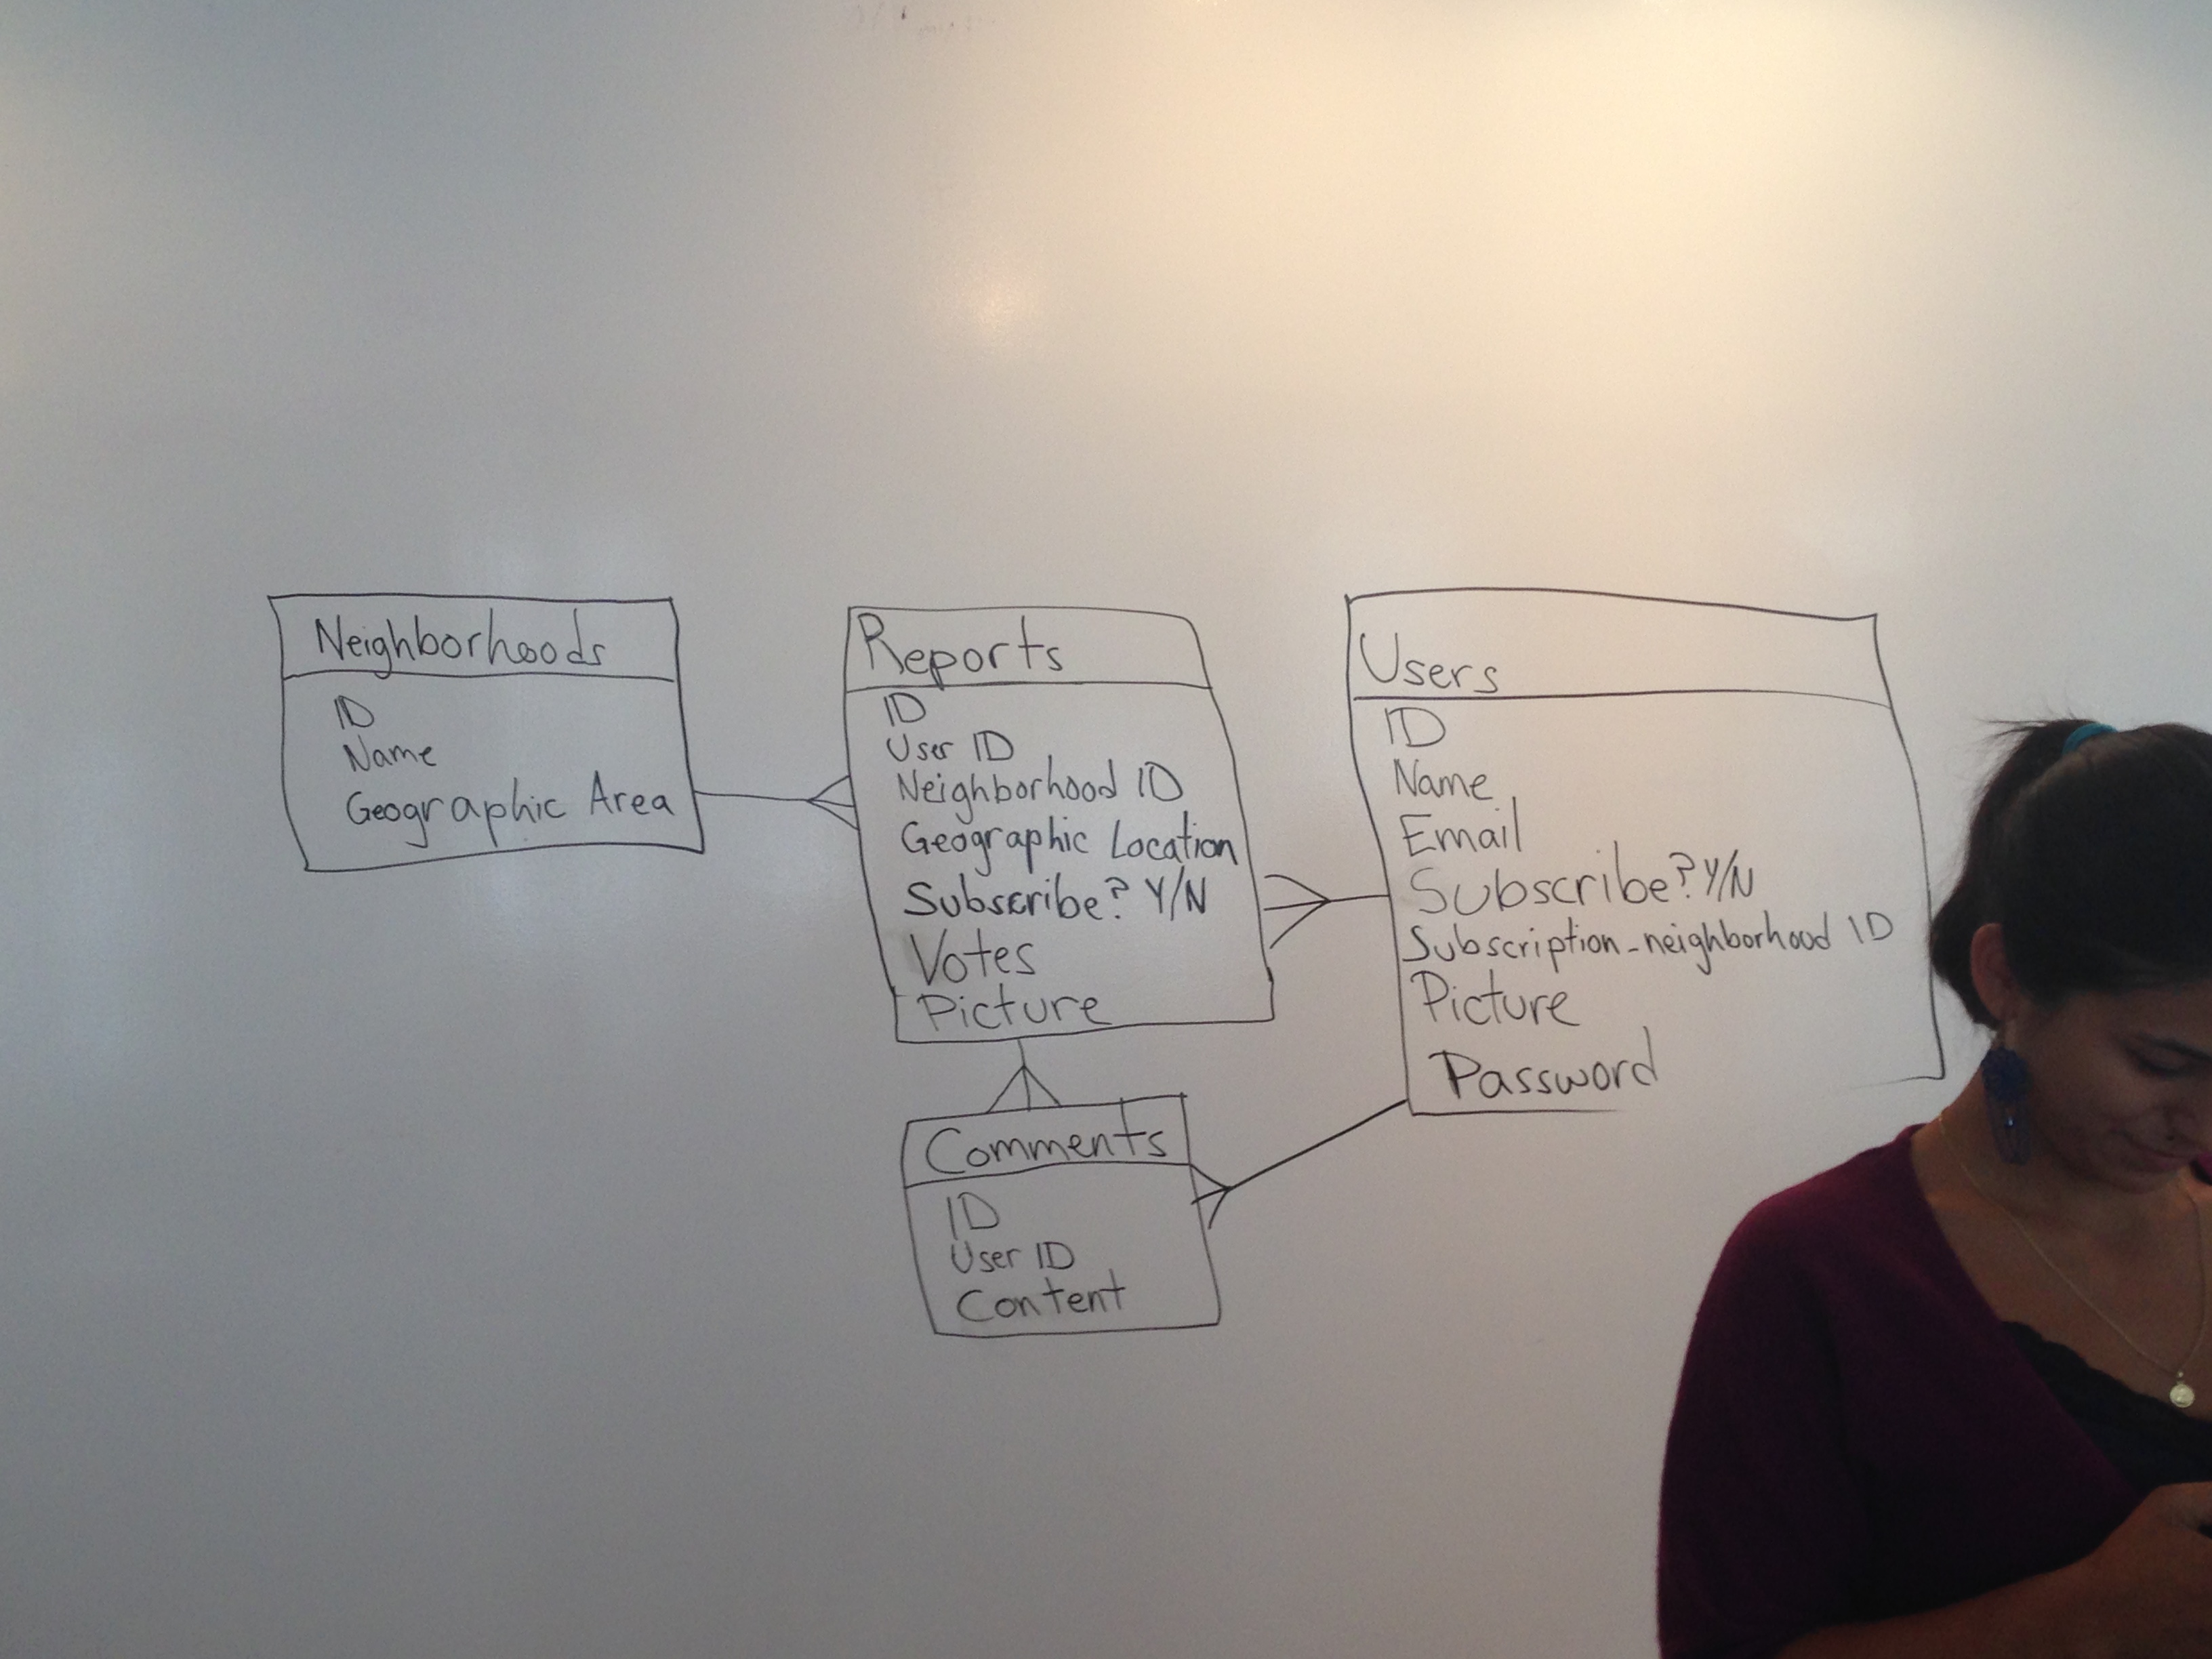 Neighborhoods
ID
Name
Geographic Area
Reports
ID
User ID
Neighborhood ID
Geographic Location
Subscribe? Y/N
Votes
Picture
Users
ID
Name
Email
Subscribe? Y/N
Subscription-neighborhood ID
Picture
Password
Comments
ID
User ID
Content